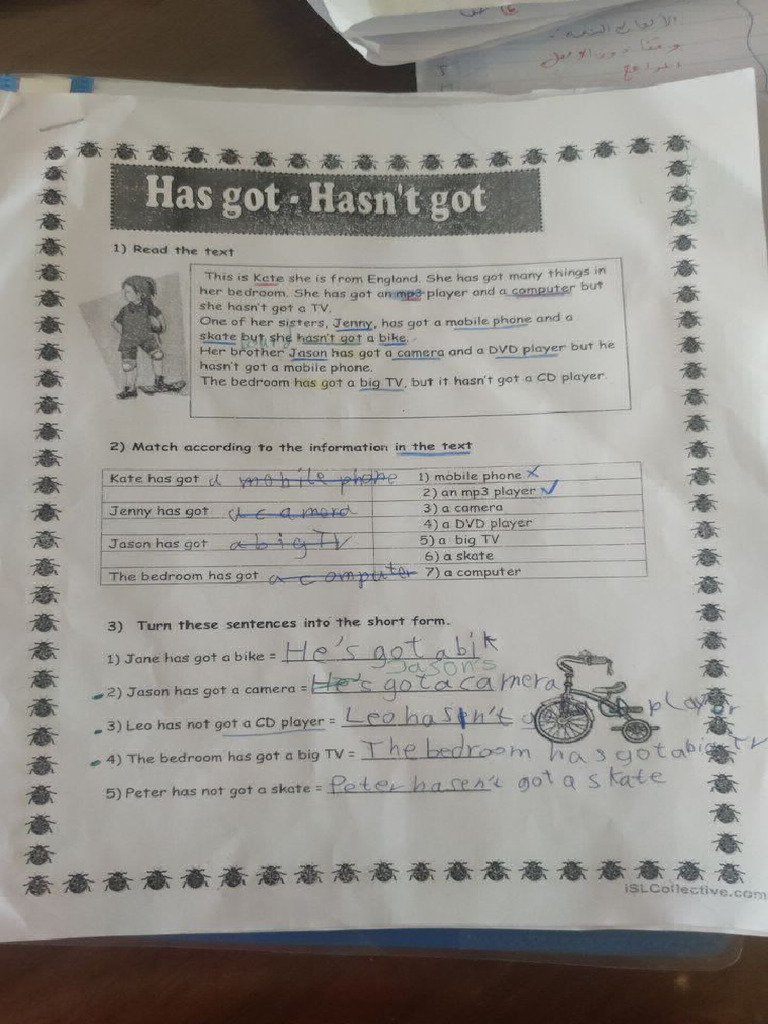 الألوان
Has got - Hasn't got
1) Read the text
This is Kate she is from England. She has got many things in
her bedroom. She has got an mp3 player and a computer but
she hasn't got a TV.
One of her sisters, Jenny, has got a mobile phone and a
skate but she hasn't got a bike.
Her brother Jason has got a camera and a DVD player but he
hasn't got a mobile phone.
The bedroom has got a big TV, but it hasn't got a CD player.
2) Match according to the information in the text
Kate has got a mobile phone 1) mobile phone ✗
2) an mp3 player ✓
Jenny has got a camera 3) a camera
4) a DVD player
Jason has got a big TV 5) a big TV
6) a skate
The bedroom has got a computer 7) a computer
3) Turn these sentences into the short form.
1) Jane has got a bike = He's got a bik
Jason's
2) Jason has got a camera = He's got a camera
3) Leo has not got a CD player = Leo hasn't player
4) The bedroom has got a big TV = The bedroom has got a big TV
5) Peter has not got a skate = Peter hasen't got a skate
iSLCollective.com